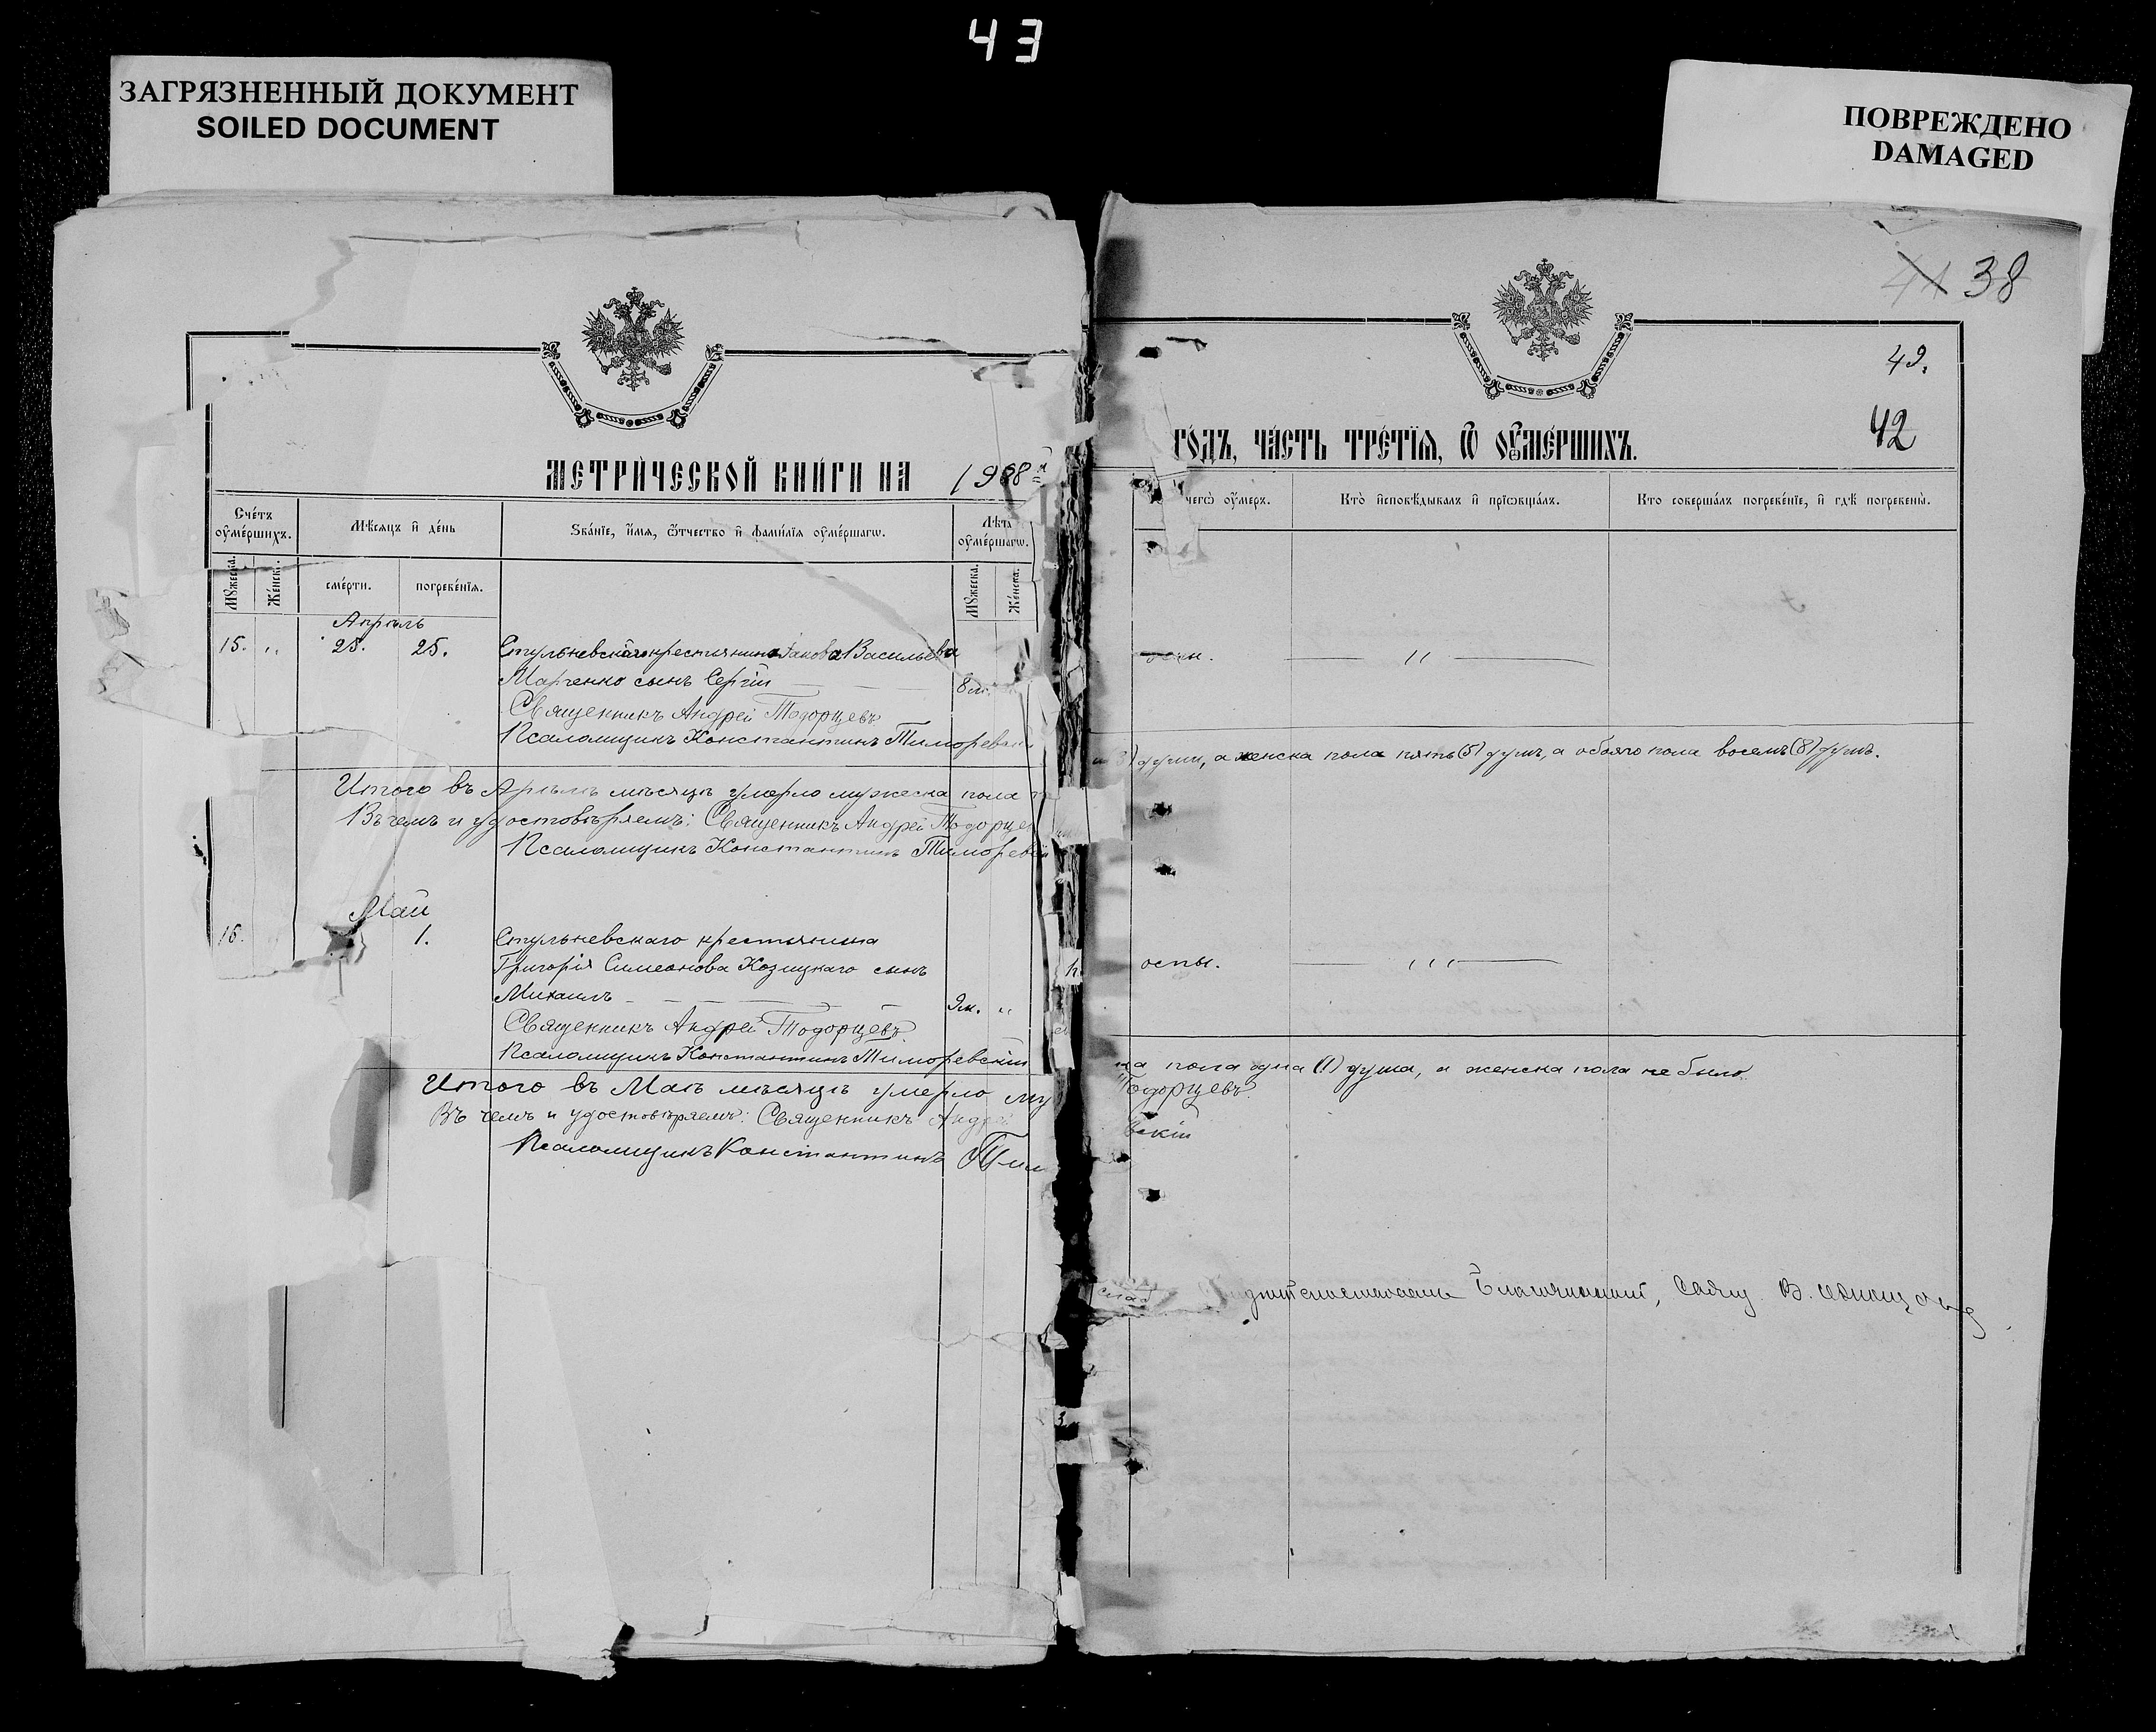 43
ЗАГРЯЗНЕННЫЙ ДОКУМЕНТ
SOILED DOCUMENT
ПОВРЕЖДЕНО
DAMAGED
41 38
49.
42
МЕТРИ́ЧЕСКОЙ КНИ́ГИ НА 1908 й
ГО́ДЪ, ЧА́СТЬ ТРЕ́ТЇѦ, Ѽ ОУ҆МЕ́РШИХЪ.
Сче́тъ оу҆ме́ршихъ.
Мѣ́сяцъ и҆ де́нь
Ѕва́нїе, и҆́мя, ѻ҆́тчество и҆ фами́лїя оу҆ме́ршагѡ.
Лѣ́та оу҆ме́ршагѡ.
чегѡ̀ оу҆́меръ.
Кто̀ и҆сповѣ́дывалъ и҆ прїѡбща́лъ.
Кто соверша́лъ погребе́нїе, и҆ гдѣ̀ погребены̀.
Мꙋ́жеска.
Же́нска.
сме́рти.
погребе́нїя.
Мꙋ́жеска.
Же́нска.
Апрѣль
15. „ 25. 25. Стульневскаго крестьянина Іакова Васильева
Марченко сынъ Сергій 8 м.
осп. — „ —
Священникъ Андрей Тодорцевъ
Псаломщикъ Константинъ Тиморевскі
Итого въ Апрѣлѣ мѣсяцѣ умерло мужеска пола
3) души, а женска пола пять (5) душъ, а обоего пола восемь (8) душъ.
Въ чемъ и удостовѣряемъ: Священникъ Андрей Тодорцев
Псаломщикъ Константинъ Тиморевскі
Май
16. 1. Стульневскаго крестьянина
Григорія Симеонова Козицкаго сынъ
Михаилъ 9 м. „
оспы. — „ —
Священникъ Андрей Тодорцевъ
Псаломщикъ Константинъ Тиморевскій
Итого въ Маѣ мѣсяцѣ умерло му
на пола одна (1) душа, а женска пола не было.
Въ чемъ и удостовѣряемъ: Священникъ Андрей
Тодорцевъ.
Псаломщикъ Константинъ Тим
вскій
Благочинный, Свящ. В.